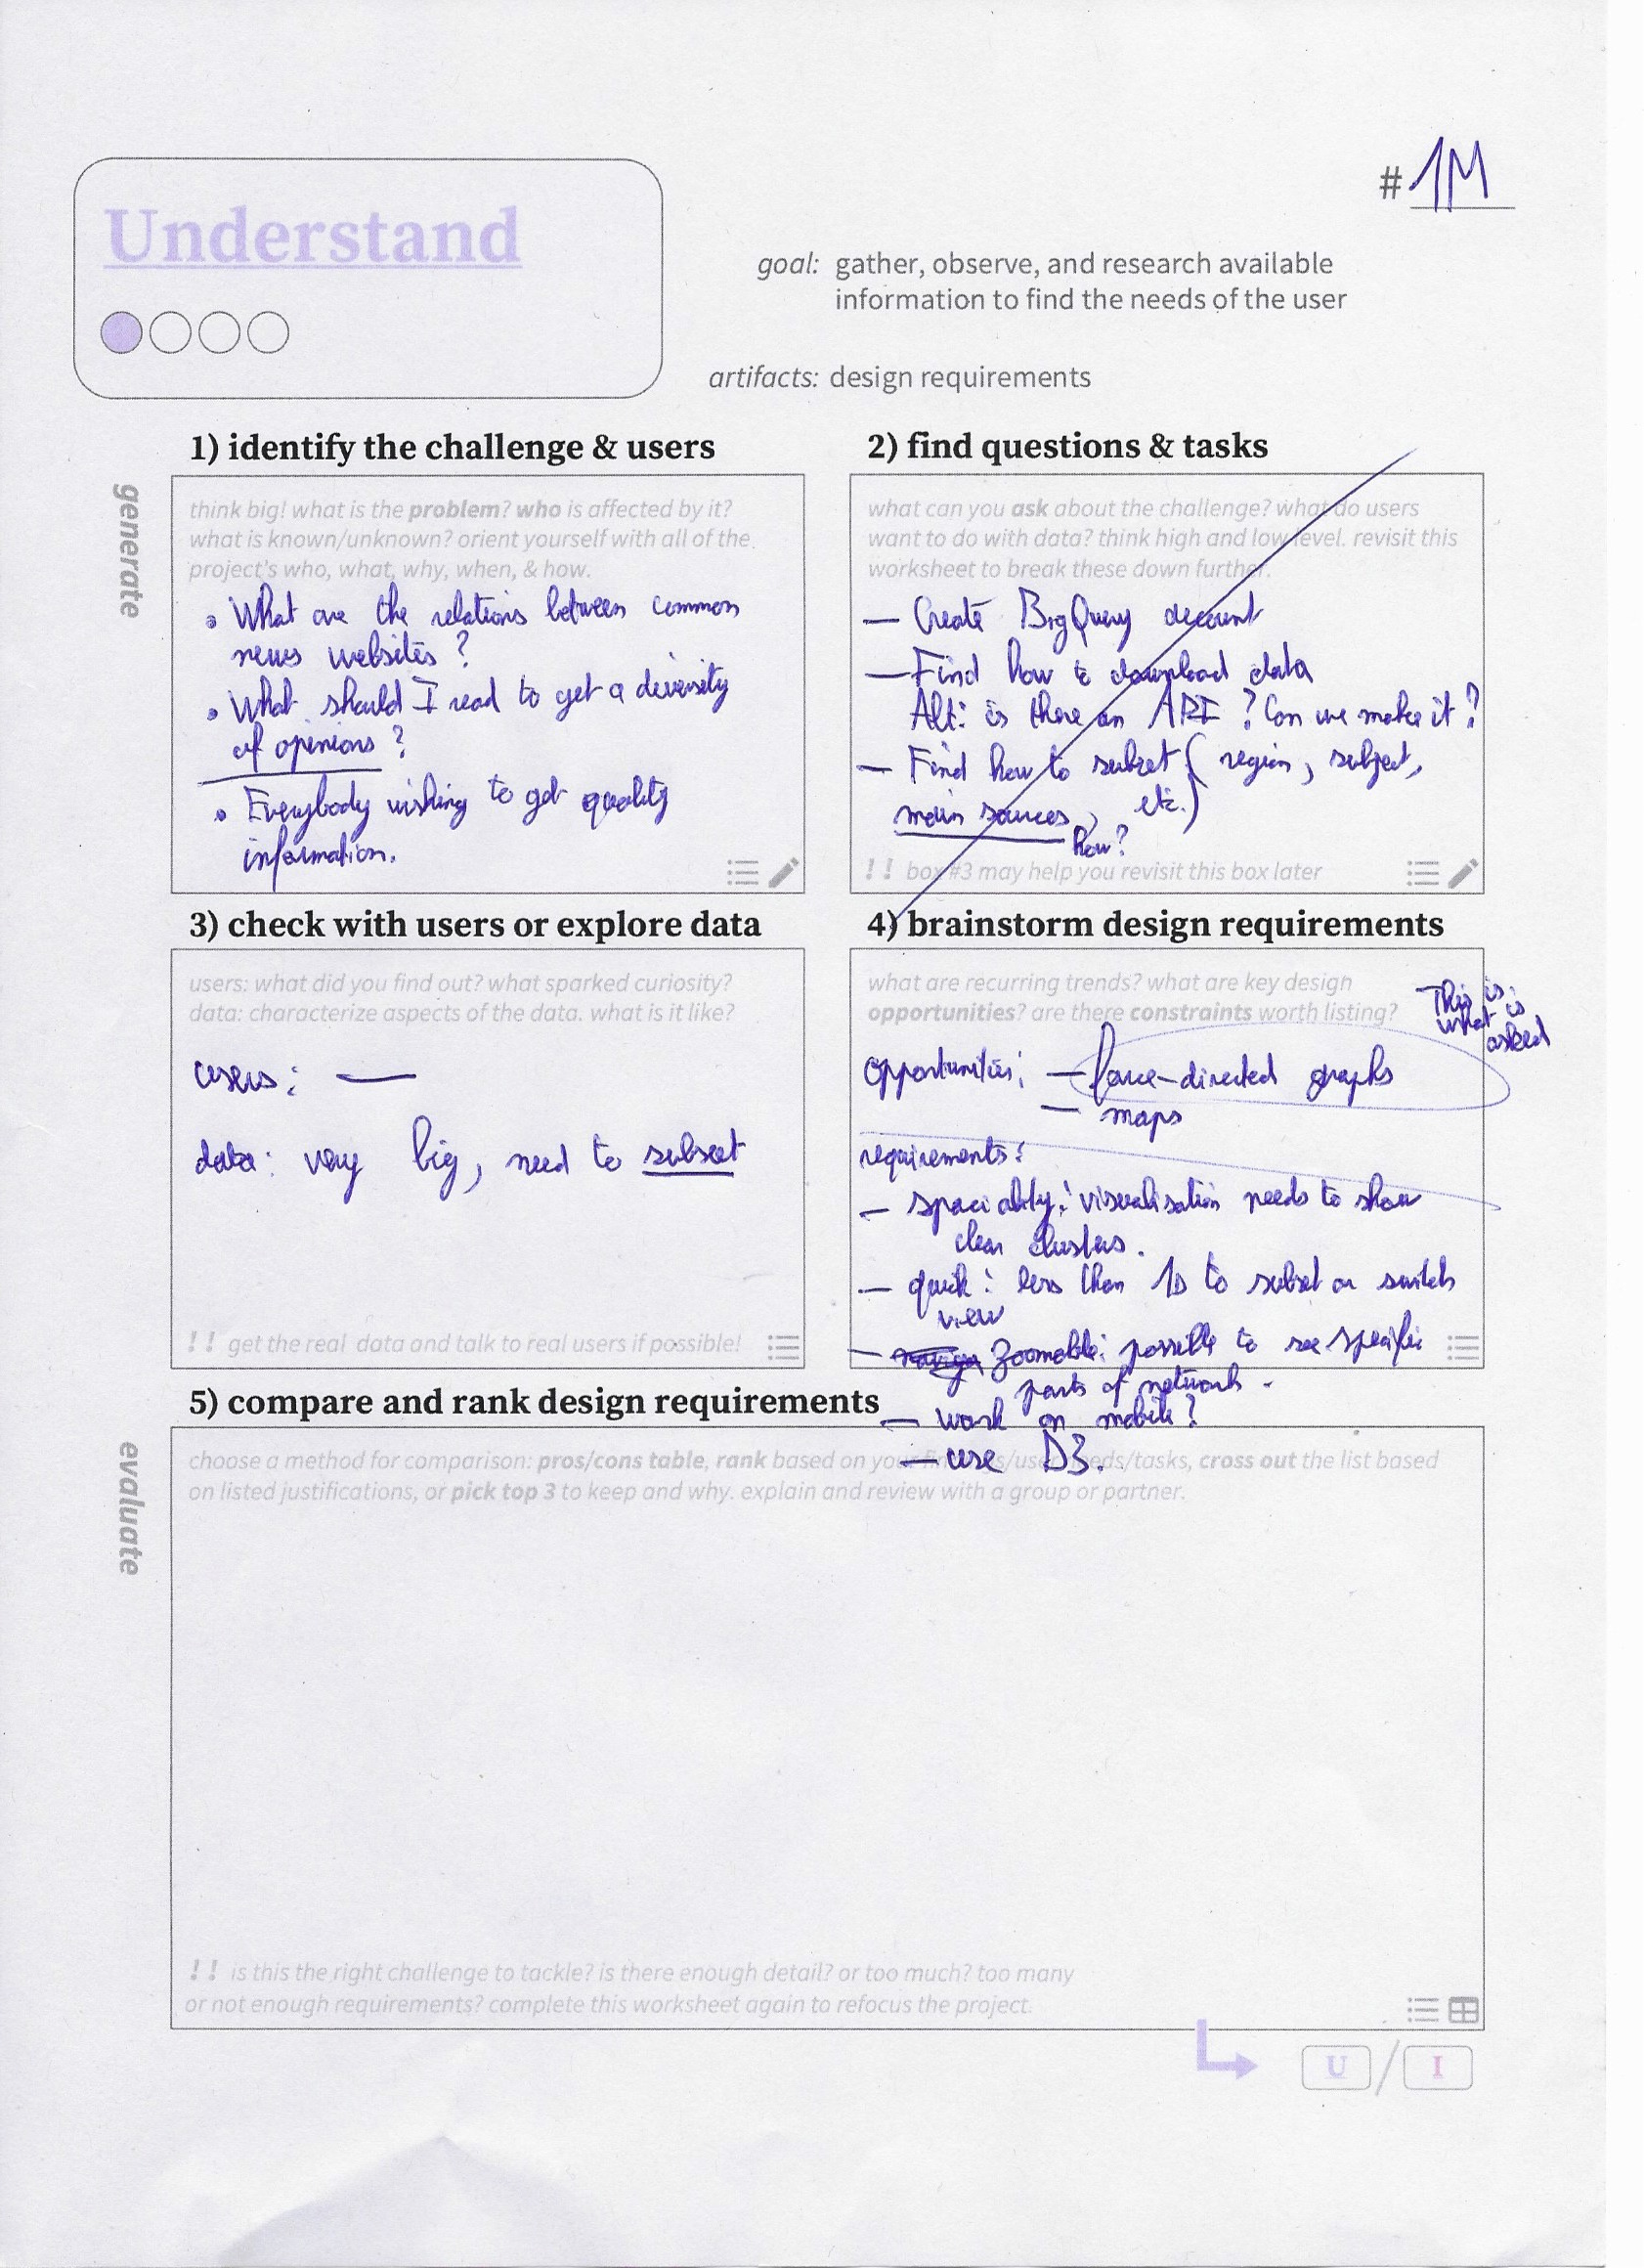 # 1M
Understand
goal: gather, observe, and research available
information to find the needs of the user
artifacts: design requirements
generate
1) identify the challenge & users
think big! what is the problem? who is affected by it?
what is known/unknown? orient yourself with all of the
project's who, what, why, when, & how.
• What are the relations between common
news websites ?
• What should I read to get a diversity
of opinions ?
• Everybody wishing to get quality
information.
2) find questions & tasks
what can you ask about the challenge? what do users
want to do with data? think high and low level. revisit this
worksheet to break these down further.
— Create BigQuery account
— Find how to download data
Alt: is there an API ? Can we make it ?
— Find how to subset ( region, subject,
main sources, etc.)
how?
!! box #3 may help you revisit this box later
3) check with users or explore data
users: what did you find out? what sparked curiosity?
data: characterize aspects of the data. what is it like?
users: —
data: very big, need to subset
!! get the real data and talk to real users if possible!
4) brainstorm design requirements
what are recurring trends? what are key design
opportunities? are there constraints worth listing?
This is
what is
asked
opportunities: — force-directed graphs
— maps
requirements:
— : visualisation needs to show
clear clusters.
— quick: less than 1s to subset or switch
view
— Zoomable: possible to see specific
parts of network.
— work on mobile?
— use D3.
evaluate
5) compare and rank design requirements
choose a method for comparison: pros/cons table, rank based on your /tasks, cross out the list based
on listed justifications, or pick top 3 to keep and why. explain and review with a group or partner.
!! is this the right challenge to tackle? is there enough detail? or too much? too many
or not enough requirements? complete this worksheet again to refocus the project.
U / I